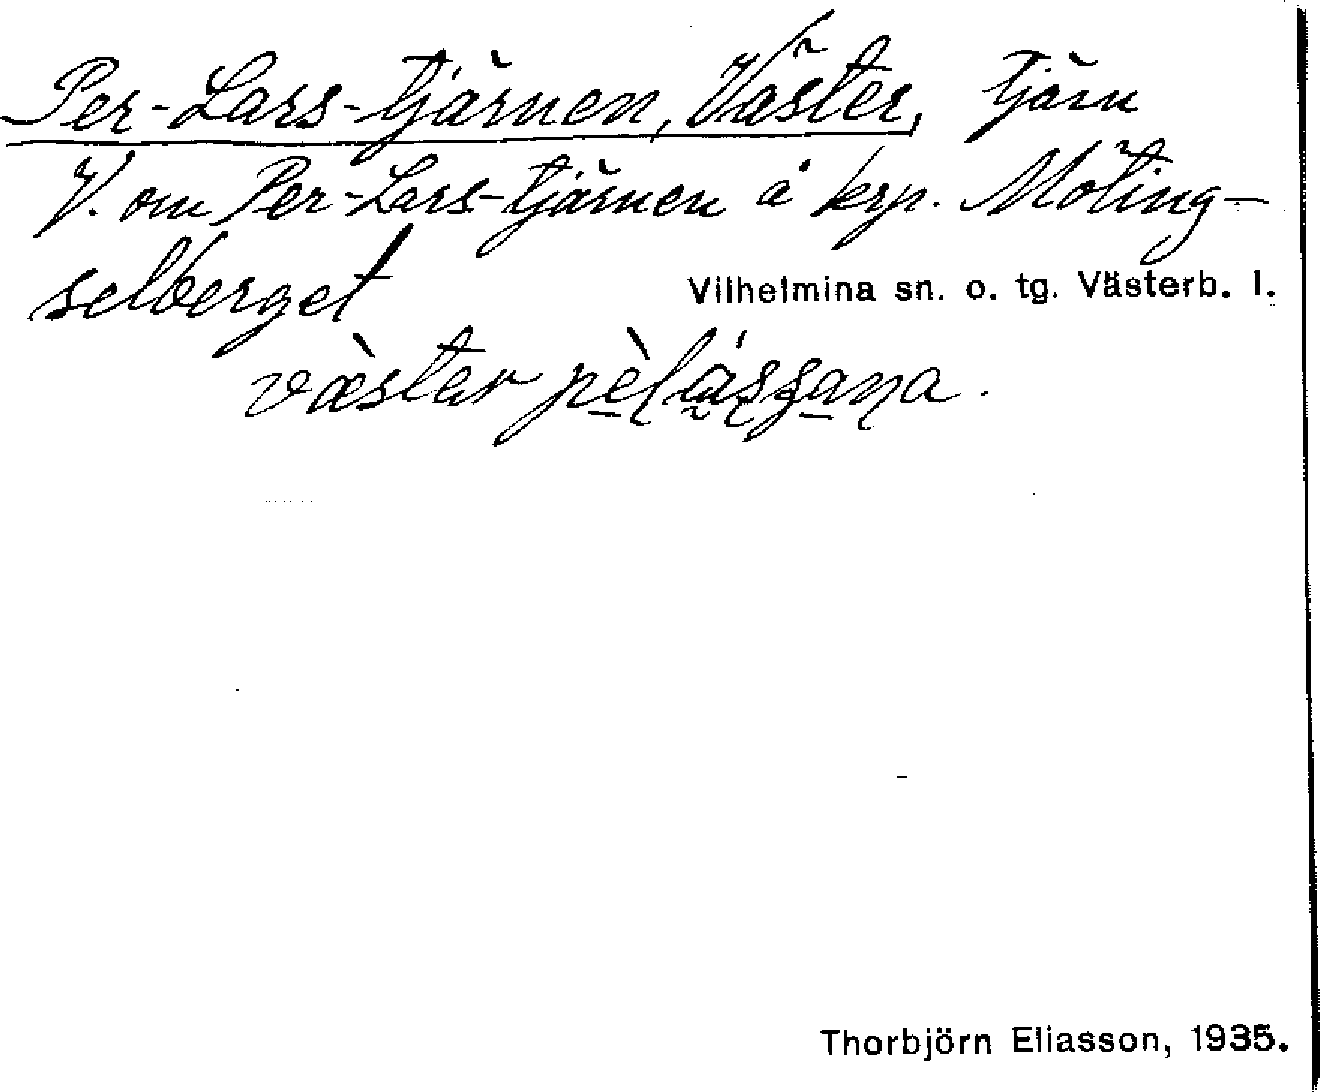 Per-Lars-tjärnen, Väster, tjärn
V. om Per-Lars-tjärnen å krp. Möting-
selberget
Vilhelmina sn. o. tg. Västerb. l.
væ̀ster
Thorbjörn Eliasson, 1935.